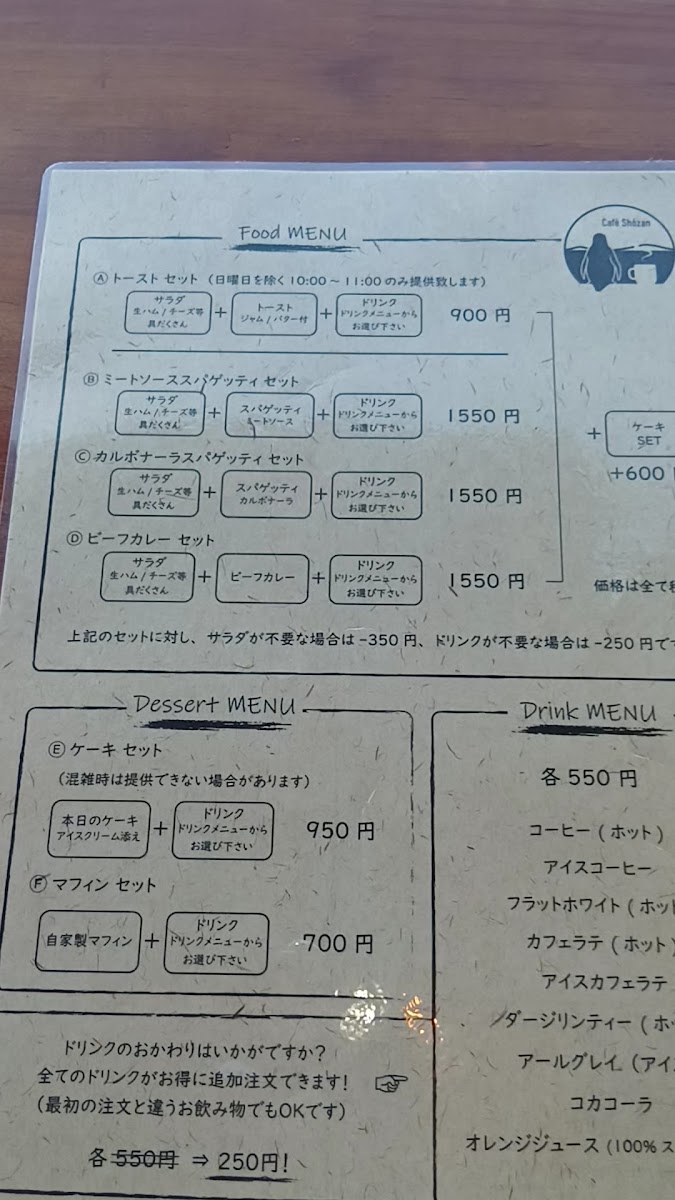 Food MENU
Café Shōzan
Ⓐ トースト セット (日曜日を除く 10:00 ~ 11:00 のみ提供致します)
サラダ
生ハム / チーズ等
具だくさん
+
トースト
ジャム / バター付
+
ドリンク
ドリンクメニューから
お選び下さい
900 円
Ⓑ ミートソーススパゲッティ セット
サラダ
生ハム / チーズ等
具だくさん
+
スパゲッティ
ミートソース
+
ドリンク
ドリンクメニューから
お選び下さい
1550 円
Ⓒ カルボナーラスパゲッティ セット
サラダ
生ハム / チーズ等
具だくさん
+
スパゲッティ
カルボナーラ
+
ドリンク
ドリンクメニューから
お選び下さい
1550 円
Ⓓ ビーフカレー セット
サラダ
生ハム / チーズ等
具だくさん
+
ビーフカレー
+
ドリンク
ドリンクメニューから
お選び下さい
1550 円
+
ケーキ
SET
+600
価格は全て
上記のセットに対し、サラダが不要な場合は -350 円、ドリンクが不要な場合は -250 円です
Dessert MENU
Ⓔ ケーキ セット
(混雑時は提供できない場合があります)
本日のケーキ
アイスクリーム添え
+
ドリンク
ドリンクメニューから
お選び下さい
950 円
Ⓕ マフィン セット
自家製マフィン
+
ドリンク
ドリンクメニューから
お選び下さい
700 円
ドリンクのおかわりはいかがですか?
全てのドリンクがお得に追加注文できます!
(最初の注文と違うお飲み物でもOKです)
各 550円 ⇒ 250円!
Drink MENU
各 550 円
コーヒー ( ホット )
アイスコーヒー
フラットホワイト ( ホッ
カフェラテ ( ホット )
アイスカフェラテ
ダージリンティー ( ホ
アールグレイ (アイ
コカコーラ
オレンジジュース (100% ス